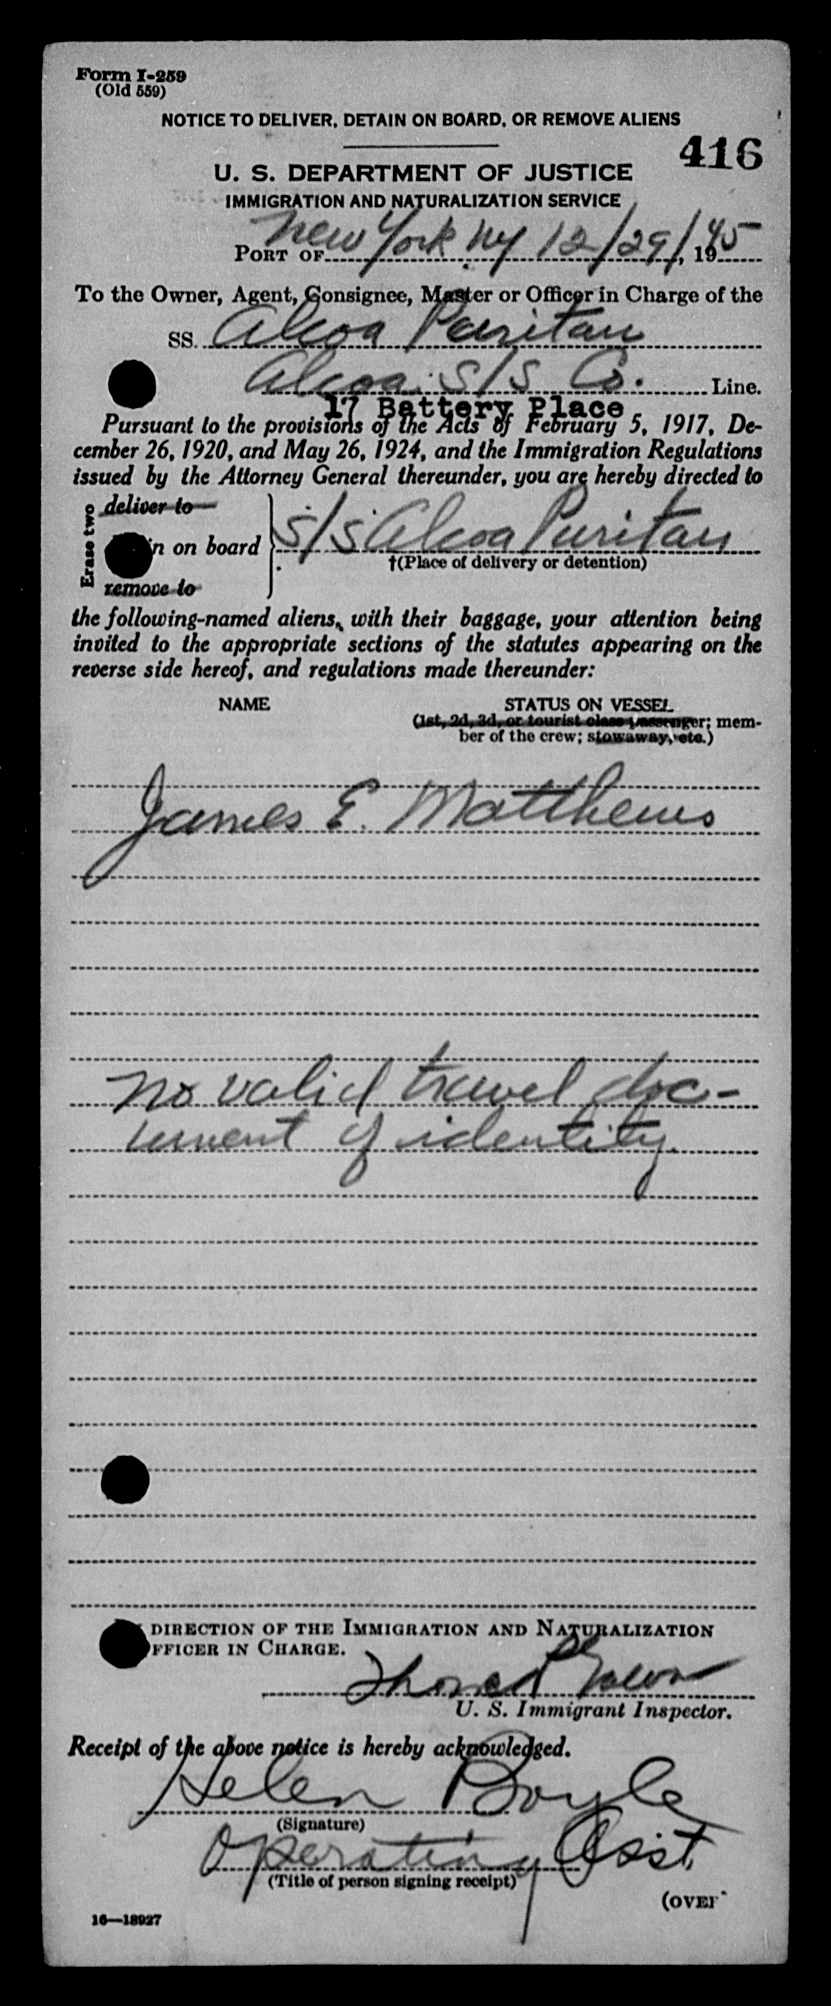 Form I-259
(Old 559)
NOTICE TO DELIVER, DETAIN ON BOARD, OR REMOVE ALIENS
416
U. S. DEPARTMENT OF JUSTICE
IMMIGRATION AND NATURALIZATION SERVICE
PORT OF New York NY 12/29/, 1945
To the Owner, Agent, Consignee, Master or Officer in Charge of the
SS. Alcoa Puritan
Alcoa S/S Co. Line.
17 Battery Place
Pursuant to the provisions of the Acts of February 5, 1917, De-
cember 26, 1920, and May 26, 1924, and the Immigration Regulations
issued by the Attorney General thereunder, you are hereby directed to
Erase two
deliver to
n on board S/S Alcoa Puritan
†(Place of delivery or detention)
remove to
the following-named aliens, with their baggage, your attention being
invited to the appropriate sections of the statutes appearing on the
reverse side hereof, and regulations made thereunder:
NAME STATUS ON VESSEL
(1st, 2d, 3d, or tourist class passenger; mem-
ber of the crew; stowaway, etc.)
James E. Matthews
No valid travel doc-
ument of identity.
DIRECTION OF THE IMMIGRATION AND NATURALIZATION
FFICER IN CHARGE.
U. S. Immigrant Inspector.
Receipt of the above notice is hereby acknowledged.
Helen Boyle
(Signature)
Operating Asst.
(Title of person signing receipt)
(OVER
16—18927